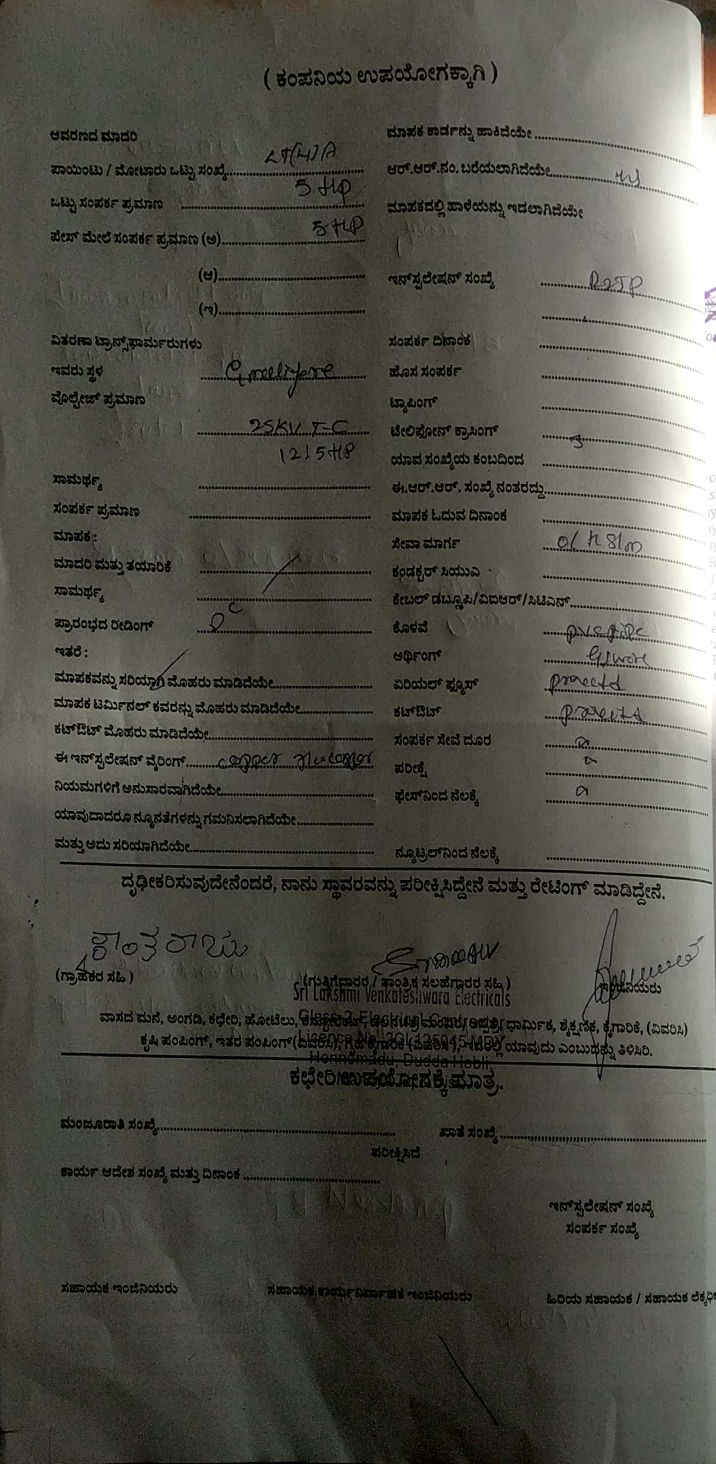 ( ಕಂಪನಿಯ ಉಪಯೋಗಕ್ಕಾಗಿ )
ಆವರಣದ ಮಾದರಿ
ಪಾಯಿಂಟು / ಮೋಟಾರು ಒಟ್ಟು ಸಂಖ್ಯೆ
ಒಟ್ಟು ಸಂಪರ್ಕ ಪ್ರಮಾಣ 5 HP
ಪೇಸ್ ಮೇಲೆ ಸಂಪರ್ಕ ಪ್ರಮಾಣ (ಅ) 5 HP
(ಆ)
(ಇ)
ವಿತರಣಾ ಟ್ರಾನ್ಸ್‌ಫಾರ್ಮರುಗಳು
ಇವರು ಸ್ಥಳ
ವೊಲ್ಟೇಜ್ ಪ್ರಮಾಣ
25KV T-C
ಸಾಮರ್ಥ್ಯ
ಸಂಪರ್ಕ ಪ್ರಮಾಣ
ಮಾಪಕ :
ಮಾದರಿ ಮತ್ತು ತಯಾರಿಕೆ
ಸಾಮರ್ಥ್ಯ
ಪ್ರಾರಂಭದ ರೀಡಿಂಗ್
ಇತರೆ :
ಮಾಪಕವನ್ನು ಸರಿಯಾಗಿ ಮೊಹರು ಮಾಡಿದೆಯೇ
ಮಾಪಕ ಟರ್ಮಿನಲ್ ಕವರನ್ನು ಮೊಹರು ಮಾಡಿದೆಯೇ
ಕಟ್‌ಔಟ್ ಮೊಹರು ಮಾಡಿದೆಯೇ
ಈ ಇನ್‌ಸ್ಟಲೇಷನ್ ವೈರಿಂಗ್ copper
ನಿಯಮಗಳಿಗೆ ಅನುಸಾರವಾಗಿದೆಯೇ
ಯಾವುದಾದರೂ ನ್ಯೂನತೆಗಳನ್ನು ಗಮನಿಸಲಾಗಿದೆಯೇ
ಮತ್ತು ಅದು ಸರಿಯಾಗಿದೆಯೇ
ಮಾಪಕ ಕಾರ್ಡನ್ನು ಹಾಕಿದೆಯೇ
ಆರ್.ಆರ್.ನಂ. ಬರೆಯಲಾಗಿದೆಯೇ
ಮಾಪಕದಲ್ಲಿ ಹಾಳೆಯನ್ನು ಇಡಲಾಗಿದೆಯೇ
ಇನ್‌ಸ್ಟಲೇಷನ್ ಸಂಖ್ಯೆ
ಸಂಪರ್ಕ ದಿನಾಂಕ
ಹೊಸ ಸಂಪರ್ಕ
ಟ್ಯಾಪಿಂಗ್
ಟೇಲಿಫೋನ್ ಕ್ರಾಸಿಂಗ್
ಯಾವ ಸಂಖ್ಯೆಯ ಕಂಬದಿಂದ
ಈ.ಆರ್.ಆರ್. ಸಂಖ್ಯೆ ನಂತರದ್ದು
ಮಾಪಕ ಓದುವ ದಿನಾಂಕ
ಸೇವಾ ಮಾರ್ಗ
ಕಂಡಕ್ಟರ್ ಸಿಯುಎ
ಕೇಬಲ್ ಡಬ್ಲ್ಯೂಪಿ/ವಿಐಆರ್/ಸಿಟಿಎನ್
ಕೊಳವೆ pvc pipe
ಅರ್ಥಿಂಗ್
ಏರಿಯಲ್ ಫ್ಯೂಸ್
ಕಟ್‌ಔಟ್
ಸಂಪರ್ಕ ಸೇವೆ ದೂರ
ಪರೀಕ್ಷೆ
ಫೇಸ್‌ನಿಂದ ನೆಲಕ್ಕೆ
ನ್ಯೂಟ್ರಲ್‌ನಿಂದ ನೆಲಕ್ಕೆ
ದೃಢೀಕರಿಸುವುದೇನೆಂದರೆ, ನಾನು ಸ್ಥಾವರವನ್ನು ಪರೀಕ್ಷಿಸಿದ್ದೇನೆ ಮತ್ತು ರೇಟಿಂಗ್ ಮಾಡಿದ್ದೇನೆ.
ಕಾಂತರಾಜು
(ಗ್ರಾಹಕರ ಸಹಿ )
(ಗುತ್ತಿಗೆದಾರರ / ತಾಂತ್ರಿಕ ಸಲಹೆಗಾರರ ಸಹಿ )
Sri Lakshmi Venkateshwara Electricals
ವಾಸದ ಮನೆ, ಅಂಗಡಿ, ಕಛೇರಿ, ಹೋಟೆಲು, ಧಾರ್ಮಿಕ, ಶೈಕ್ಷಣಿಕ, ಕೈಗಾರಿಕೆ, (ವಿವರಿಸಿ)
ಕೃಷಿ ಪಂಪಿಂಗ್, ಇತರ ಪಂಪಿಂಗ್ ಯಾವುದು ಎಂಬುದನ್ನು ತಿಳಿಸಿರಿ.
Honnemadu, Dudda Hobli,
ಕಛೇರಿ ಉಪಯೋಗಕ್ಕೆ ಮಾತ್ರ.
ಮಂಜೂರಾತಿ ಸಂಖ್ಯೆ ಖಾತೆ ಸಂಖ್ಯೆ
ಪರೀಕ್ಷಿಸಿದೆ
ಕಾರ್ಯ ಆದೇಶ ಸಂಖ್ಯೆ ಮತ್ತು ದಿನಾಂಕ
ಇನ್‌ಸ್ಟಲೇಷನ್ ಸಂಖ್ಯೆ
ಸಂಪರ್ಕ ಸಂಖ್ಯೆ
ಸಹಾಯಕ ಇಂಜಿನಿಯರು ಸಹಾಯಕ ಕಾರ್ಯನಿರ್ವಾಹಕ ಇಂಜಿನಿಯರು ಹಿರಿಯ ಸಹಾಯಕ / ಸಹಾಯಕ